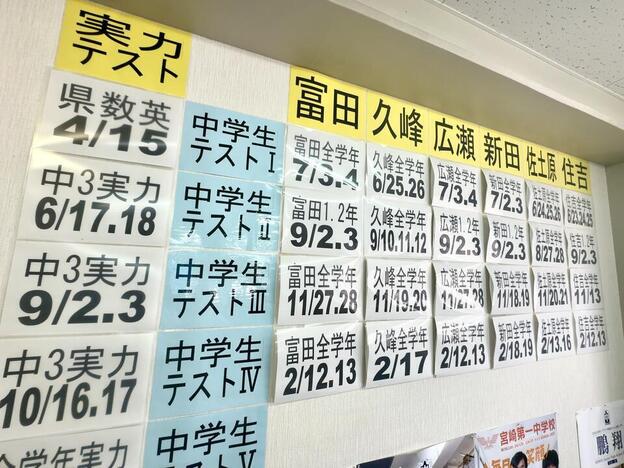 実力
テスト
県数英
4/15
中3実力
6/17.18
中3実力
9/2.3
中3実力
10/16.17
全学年実力
中学生
テストⅠ
中学生
テストⅡ
中学生
テストⅢ
中学生
テストⅣ
中学生
富田
富田全学年
7/3.4
富田1.2年
9/2.3
富田全学年
11/27.28
富田全学年
2/12.13
久峰
久峰全学年
6/25.26
久峰全学年
9/10.11.12
久峰全学年
11/19.20
久峰全学年
2/17
広瀬
広瀬全学年
7/3.4
広瀬1.2年
9/2.3
広瀬全学年
11/27.28
広瀬全学年
2/12.13
新田
新田全学年
7/2.3
新田1.2年
9/2.3
新田全学年
11/18.19
新田全学年
2/18.19
佐土原
佐土原全学年
6/24.25.26
佐土原全学年
8/27.28
佐土原全学年
11/20.21
佐土原全学年
2/13.16
住吉
住吉全学年
6/23.24.25
住吉1.2年
9/2.3
住吉全学年
11/13
住吉全学年
2/12.13
宮崎第一中学校
鵬翔